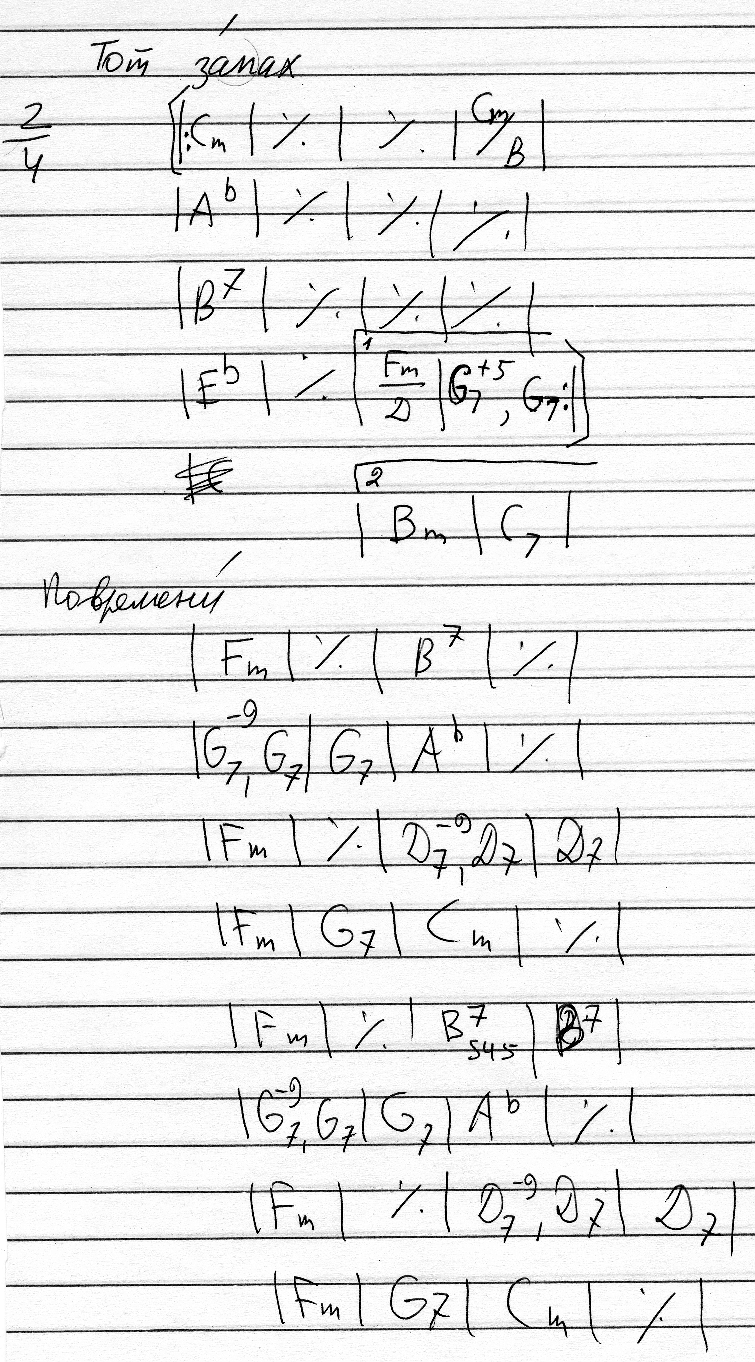 Тот за́пах
2/4 |: Cm | ٪ | ٪ | Cm/B |
| Ab | ٪ | ٪ | ٪ |
| B7 | ٪ | ٪ | ٪ |
| Eb | ٪ | 1 Fm/D | G7+5, G7 :|
2
| Bm | C7 |
Повремени́
| Fm | ٪ | B7 | ٪ |
| G7-9, G7 | G7 | Ab | ٪ |
| Fm | ٪ | D7-9, D7 | D7 |
| Fm | G7 | Cm | ٪ |
| Fm | ٪ | B7 545 | B7 |
| G7-9, G7 | G7 | Ab | ٪ |
| Fm | ٪ | D7-9, D7 | D7 |
| Fm | G7 | Cm | ٪ |